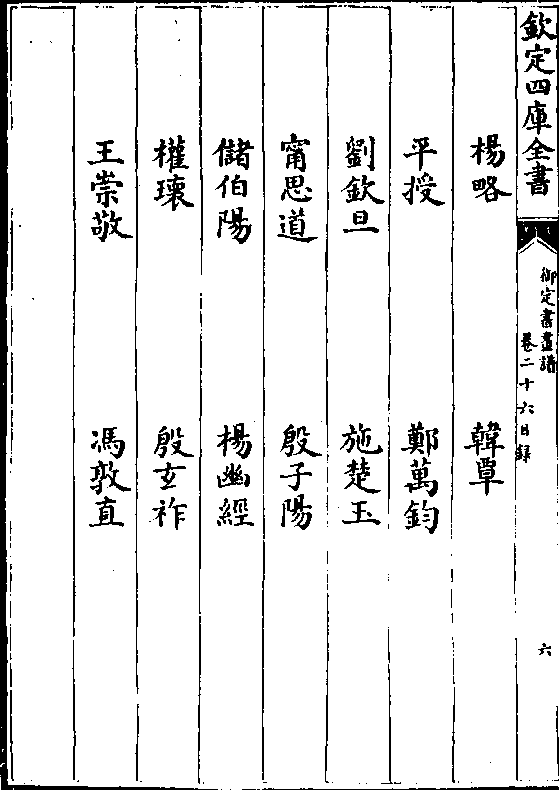 欽定四庫全書
御定書畫譜
卷二十六目錄
六
楊略 韓覃
平授 鄭萬鈞
劉欽旦 施楚玉
甯思道 殷子陽
儲伯陽 楊幽經
權瓌 殷玄祚
王崇敬 馮敦直